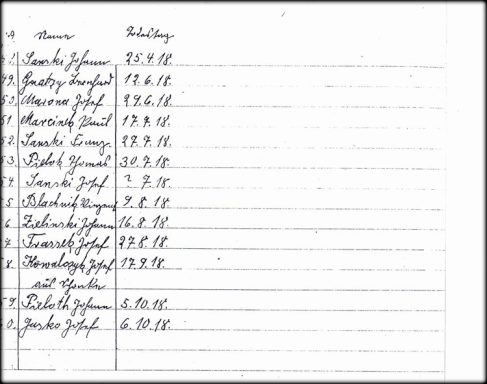 Name Todestag
Janski Johann 25.4.18.
49. Gnatzy Leonhard 12.6.18.
50. Marona Josef 29.6.18.
51. Marcinek Paul 17.7.18.
52. Janski Franz 27.7.18.
53. Pielok Thomas 30.7.18.
54. Janski Josef ? 7.18.
5 Blachnik Vinzent 9.8.18.
6 Zielinski Johann 16.8.18.
7 Trassek Josef 27.8.18.
8. Kowalczyk Josef 17.9.18.
aus
59. Pieloth Johann 5.10.18.
0. Jusko Josef 6.10.18.